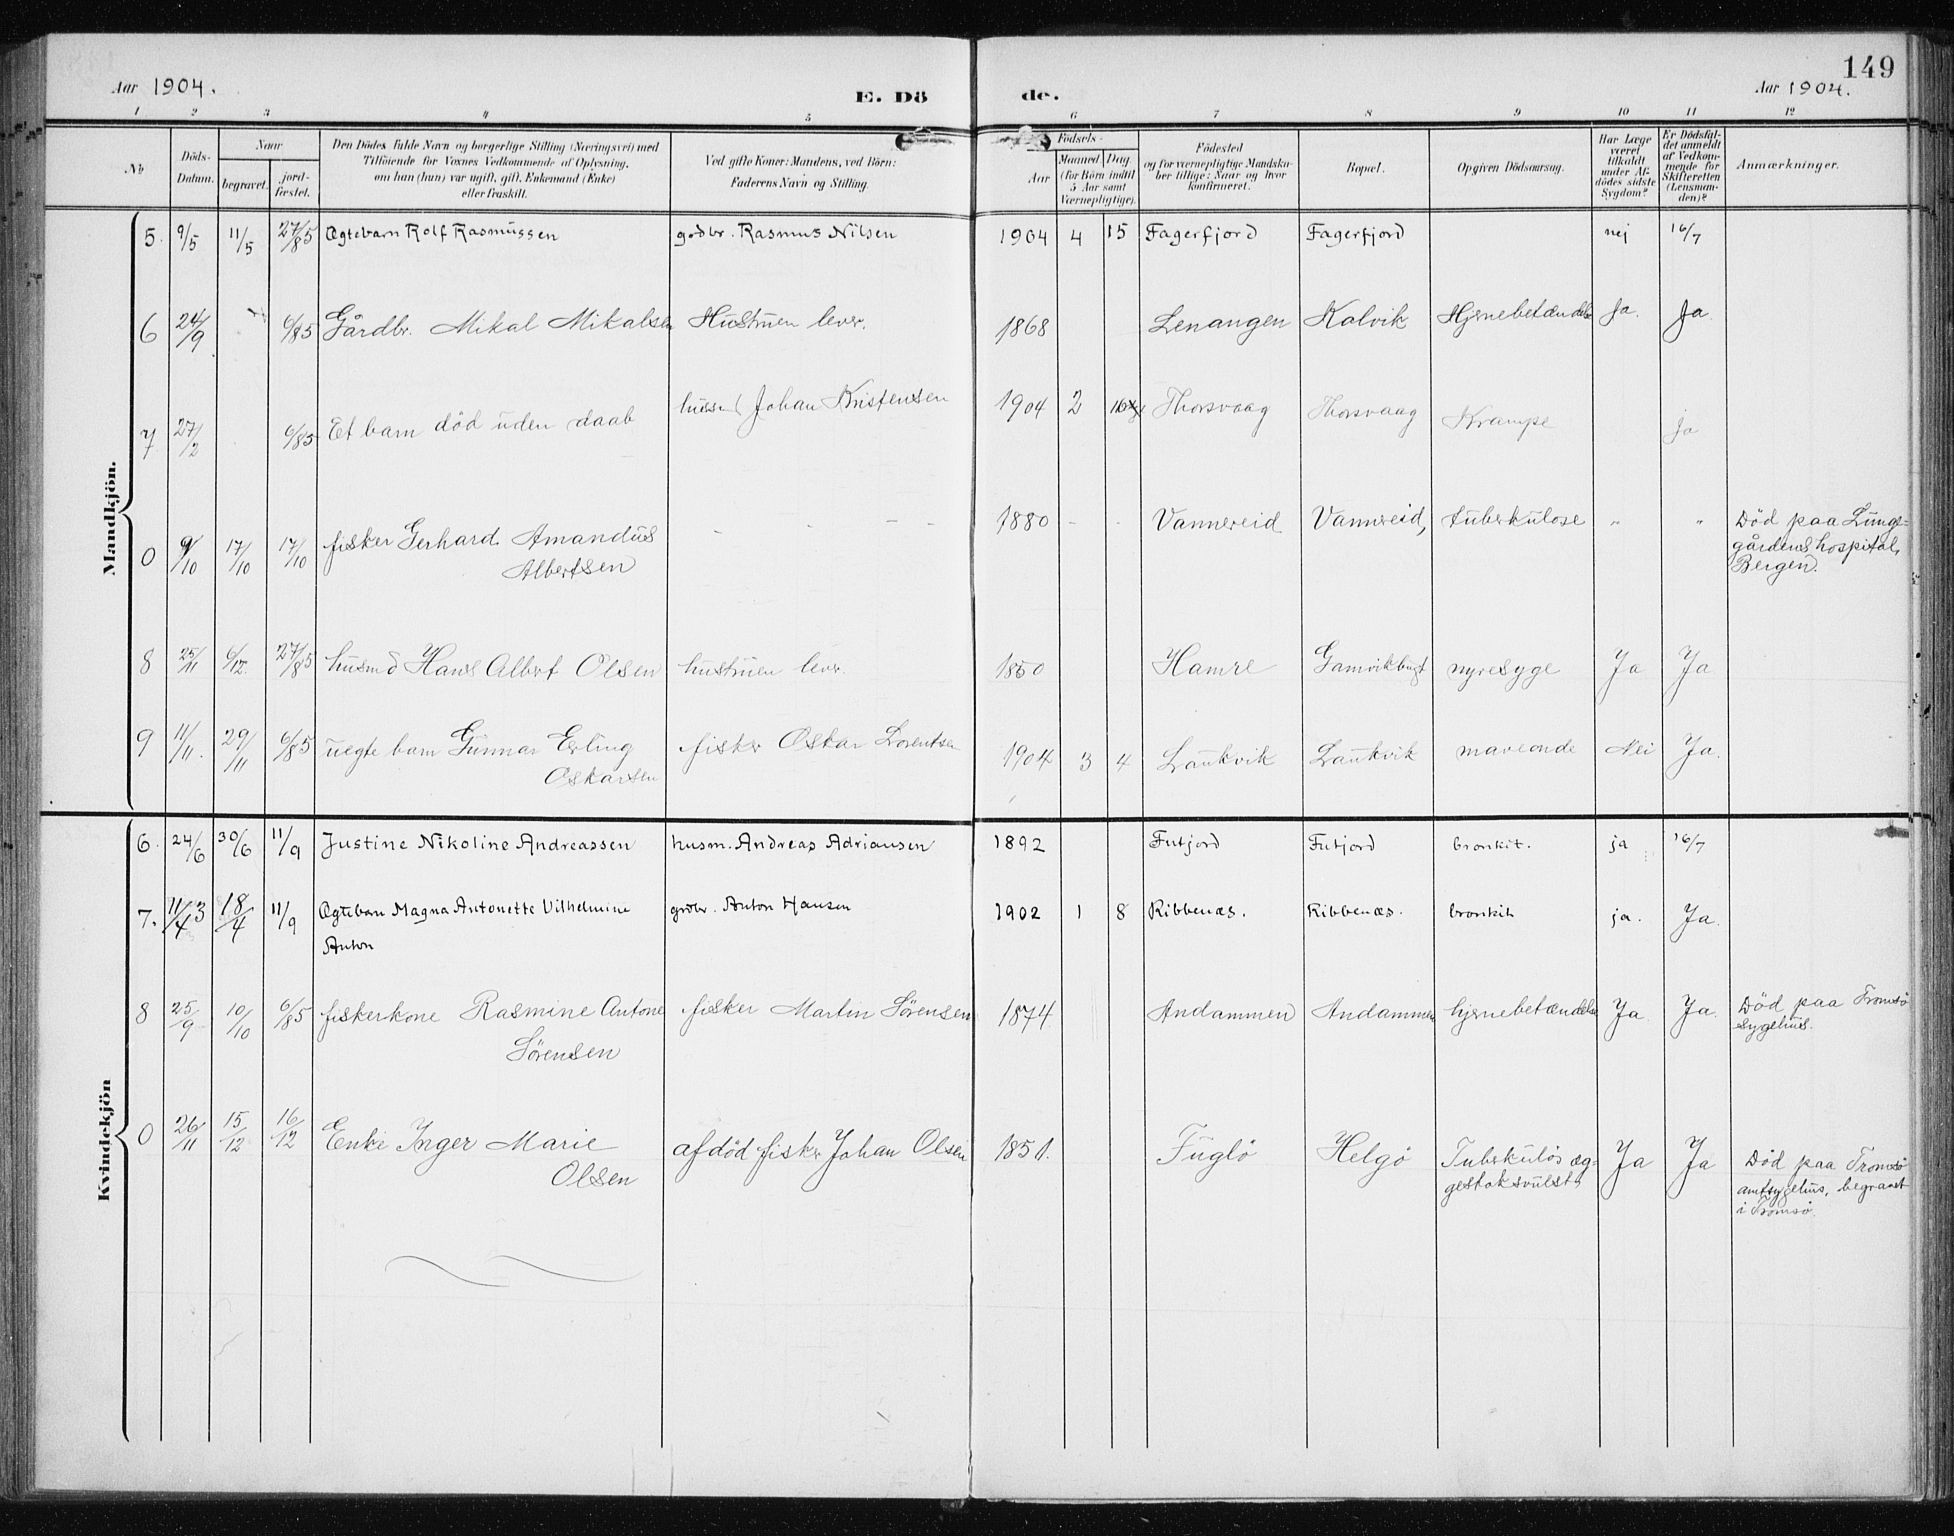 149
Aar 1904.
E. Dö
de.
Aar 1904.
1 2 3 4 5 6 7 8 9 10 11 12
No
Döds-
Datum.
Naar
begravet.
jord-
fæstet.
Den Dödes fulde Navn og borgerlige Stilling (Næringsvei) med
Tilföiende for Voxnes Vedkommende af Oplysning,
om han (hun) var ugift, gift, Enkemand (Enke)
eller fraskilt.
Ved gifte Koner: Mandens, ved Börn:
Faderens Navn og Stilling.
Födsels-
Aar
Maaned
Dag
(for Börn indtil
5 Aar samt
Værnepligtige).
Födested
og for værnepligtige Mandska-
ber tillige: Naar og hvor
konfirmeret.
Bopæl.
Opgiven Dödsaarsag.
Har Læge
været
tilkaldt
under Af-
dödes sidste
Sygdom?
Er Dödsfal-
det anmeldt
af Vedkom-
mende for
Skifteretten
(Lensman-
den)?
Anmærkninger.
Mandkjön.
5. 9/5 11/5 27/85 Ægtebarn Rolf Rasmussen grdbr. Rasmus Nilsen 1904 4 15 Fagerfjord Fagerfjord nej 16/7
6 24/9 6/85 Gårdbr. Mikal Mikalsen Hustruen lever. 1868 Lenangen Kalvik Hjernebetændelse Ja. Ja
7 27/2 6/85 Et barn död uden daab Johan Kristensen 1904 2 Thorsvaag Thorsvaag Krampe ja
0 9/10 17/10 17/10 fisker Gerhard Amandus - - - - 1880 - - Vannereid Vannereid, tuberkulose " " Död paa Lungs-
Albertsen
gårdens hospital,
Bergen.
8 25/11 6/12. 27/85 husmd Hans Albert Olsen hustruen lever. 1850 Hamre Gamvikbugt nyresyge Ja Ja
9 11/11. 29/11 6/85 uegte barn Gunnar Erling fisker Oskar Lorentsen 1904 3 4 Laukvik Laukvik maveonde Nei Ja.
Oskarsen
Kvindekjön
6. 24/6 30/6 11/9 Justine Nikoline Andreassen husm. Andreas Adriansen 1892 Futjord Futjord bronkit. ja 16/7
7. 18/4 11/9 Ægtebarn Magna Antonette Vilhelmine grdbr. Anton Hansen 1902 1 8 Ribbenæs. Ribbenæs. bronkit ja. Ja.
Anton
8 25/9 10/10 6/85 fiskerkone Rasmine Antone fisker Martin Sörensen 1874 Andammen Andammen hjernebetændelse Ja Ja. Död paa Tromsö
Sörensen
sygehus.
0 26/11 15/12 16/12 Enke Inger Marie afdöd fisker Johan Olsen 1851. Fuglö Helgö Tuberkulös æg- Ja Ja Död paa Tromsö
Olsen
gestoksvulst,
amtsygehus, begravet
i Tromsö.